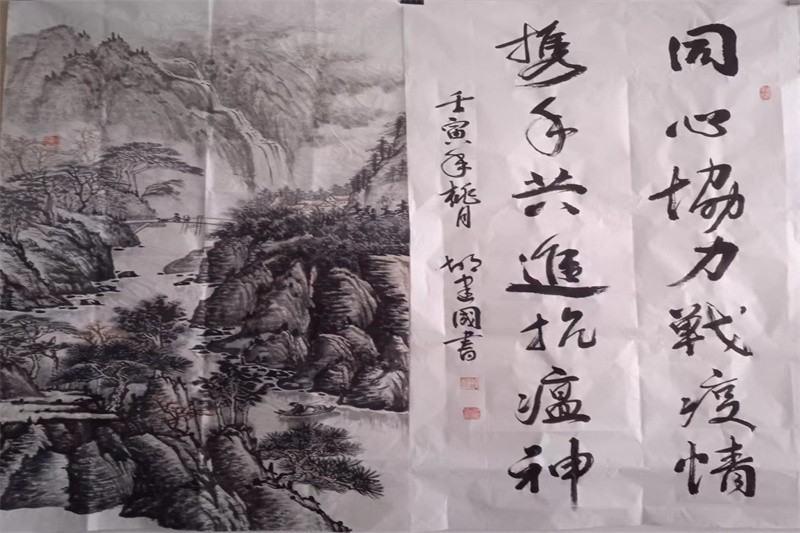 同心協力戰疫情
攜手共進抗瘟神
壬寅年桃月 胡建國書